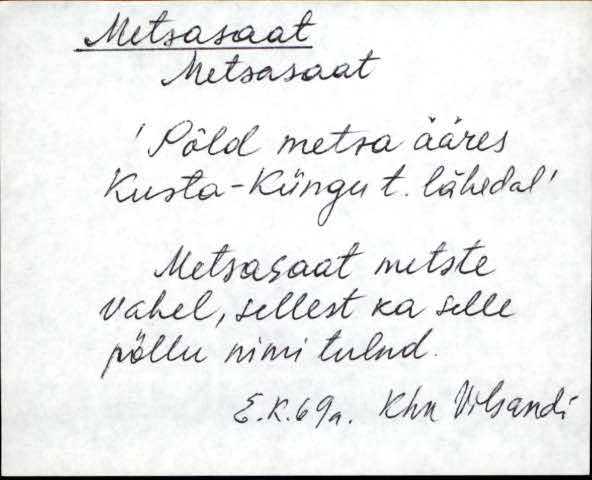 Metsasaat
Metsasaat
'Põld metsa ääres
Kusta-Küngu t. lähedal'
Metsasaat metste
vahel, sellest ka selle
põllu nimi tulnd.
E.K.69a. Khn Vilsandi